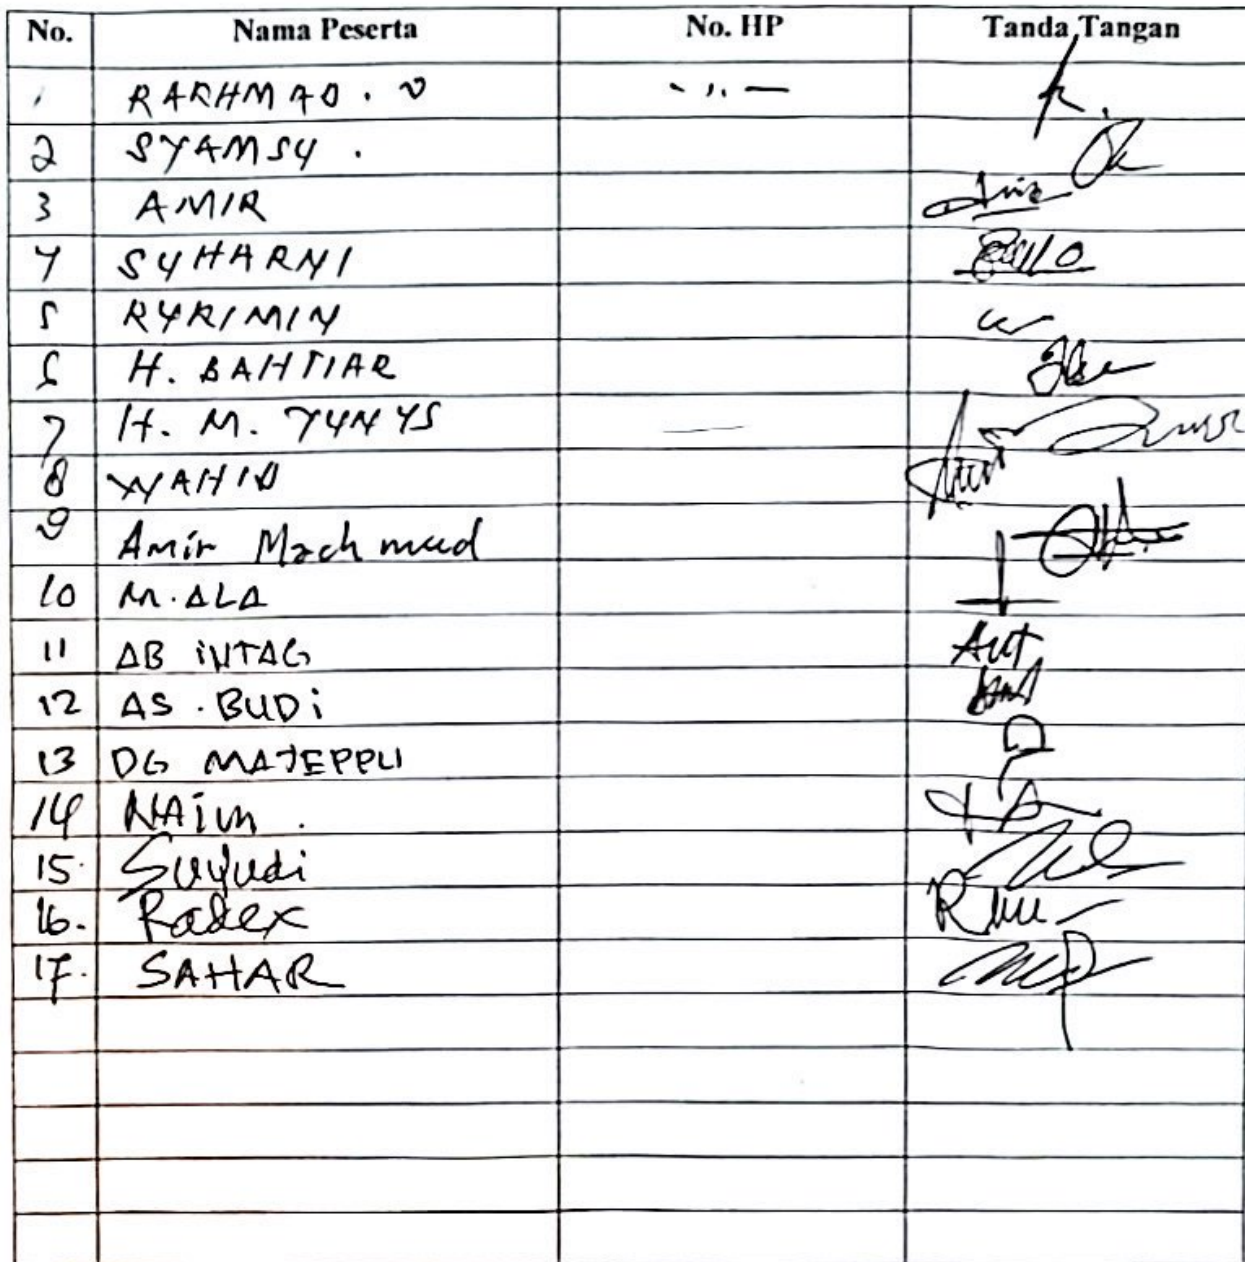 No. Nama Peserta No. HP Tanda Tangan
1 RARHMAD . V - ,, -
2 SYAMSU .
3 AMIR
4 SUHARNI
5 RURIMIN
6 H. BAHTIAR
7 H. M. YUNUS —
8 WAHID
9 Amir Machmud
10 M. ALA
11 AB iNTAG
12 AS . BUDi
13 DG MAJEPPU
14 NAim .
15. Suyudi
16. Radex
17. SAHAR